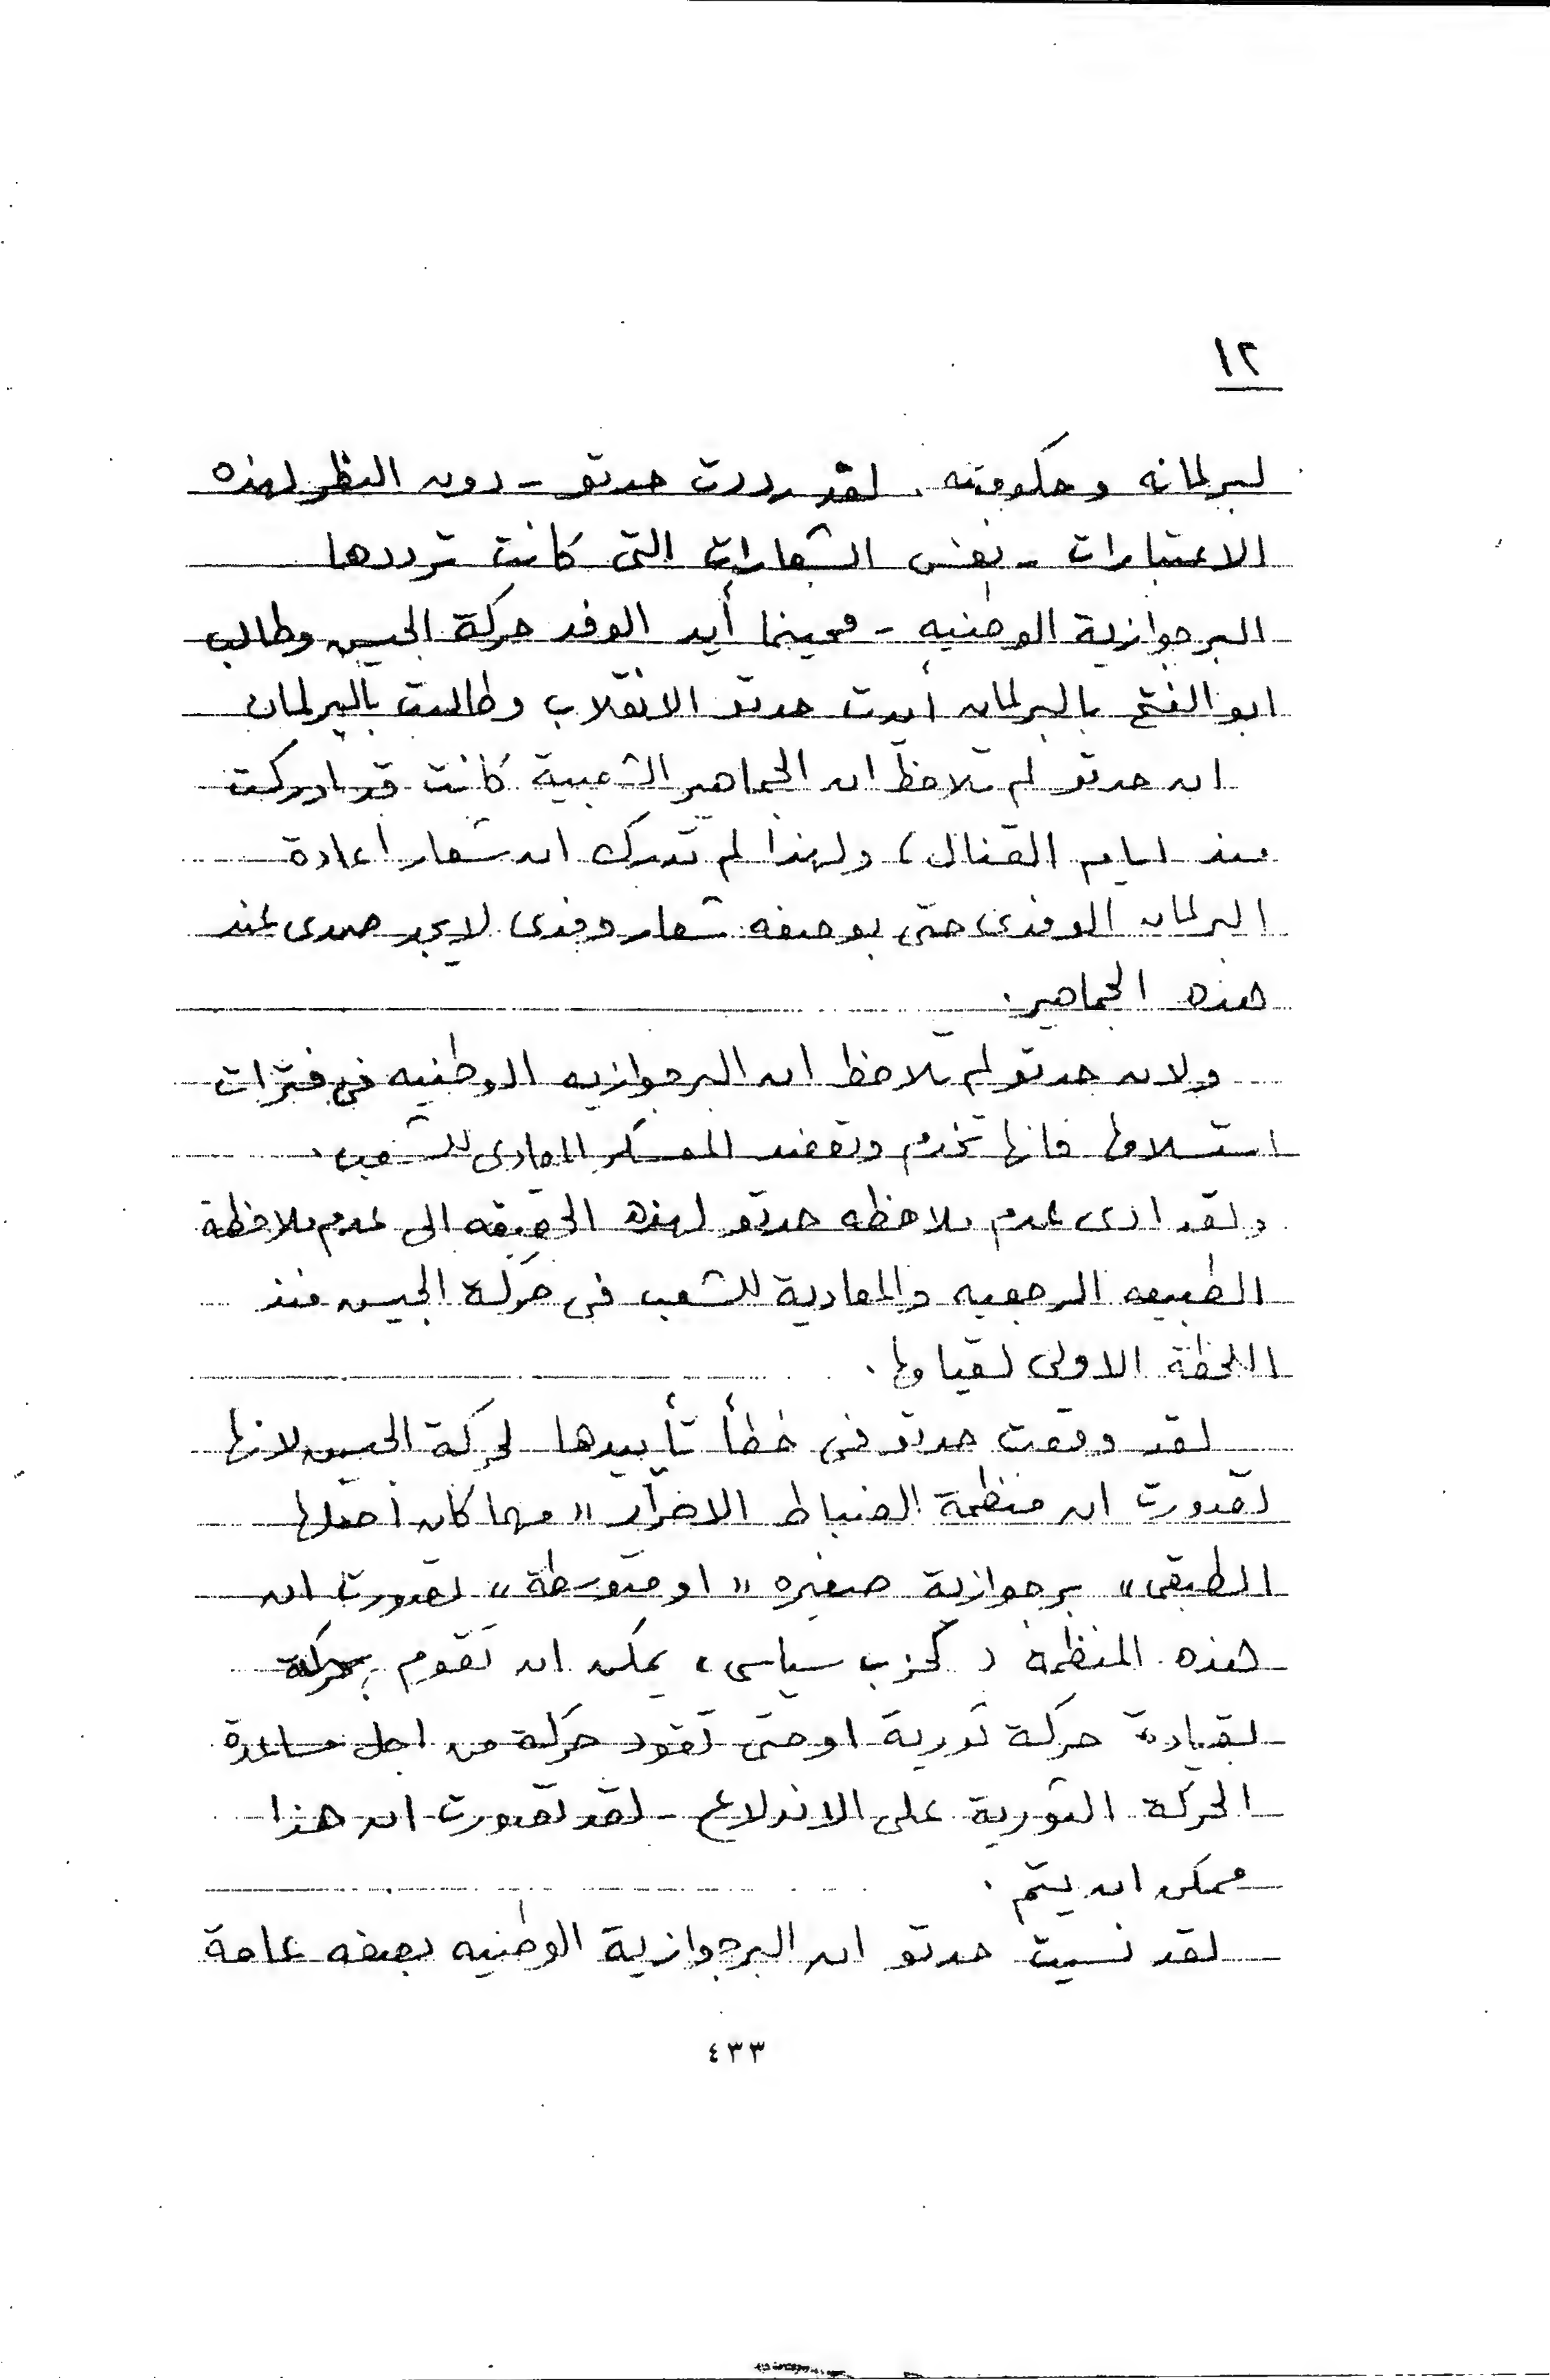 ١٢
لبرلمانه وحكومته. لقد رددت حدتو - دون النظر لهذه
الاعتبارات - نفس الشعارات التى كانت ترددها
البرجوازية الوطنيه - فحينما أيد الوفد حركة الجيش وطالب
ابو الفتح بالبرلمان أيدت حدتو الانقلاب وطالبت بالبرلمان
ان حدتو لم تلاحظ ان الجماهير الشعبية كانت قد ادركت
منذ ايام القنال، ولهذا لم تدرك ان شعار اعادة
البرلمان الوفدى حتى بوصفه شعار وفدى لايجد صدى عند
هذه الجماهير.
ولان حدتو لم تلاحظ ان البرجوازيه الوطنيه فى فترات
استسلامها فانها تخدم وتعضد المعسكر المعادى للشعب.
ولقد ادى عدم ملاحظه حدتو لهذه الحقيقه الى عدم ملاحظة
الطبيعه الرجعيه والمعادية للشعب فى حركة الجيش منذ
اللحظة الاولى لقيامها.
لقد وقعت حدتو فى خطأ تأييدها لحركة الجيش لانها
تصورت ان منظمة الضباط الاحرار "مهما كان أصلها
الطبقى" برجوازية صغيره "او متوسطة" تصورت ان
هذه المنظمة (كحزب سياسى، يمكن ان تقوم بحركة
بقيادة حركة ثورية او حتى تقود حركة من اجل مساعدة
الحركة الثورية على الاندلاع - لقد تصورت ان هذا
ممكن ان يتم.
لقد نسيت حدتو ان البرجوازية الوطنيه بصفه عامة
٤٣٣